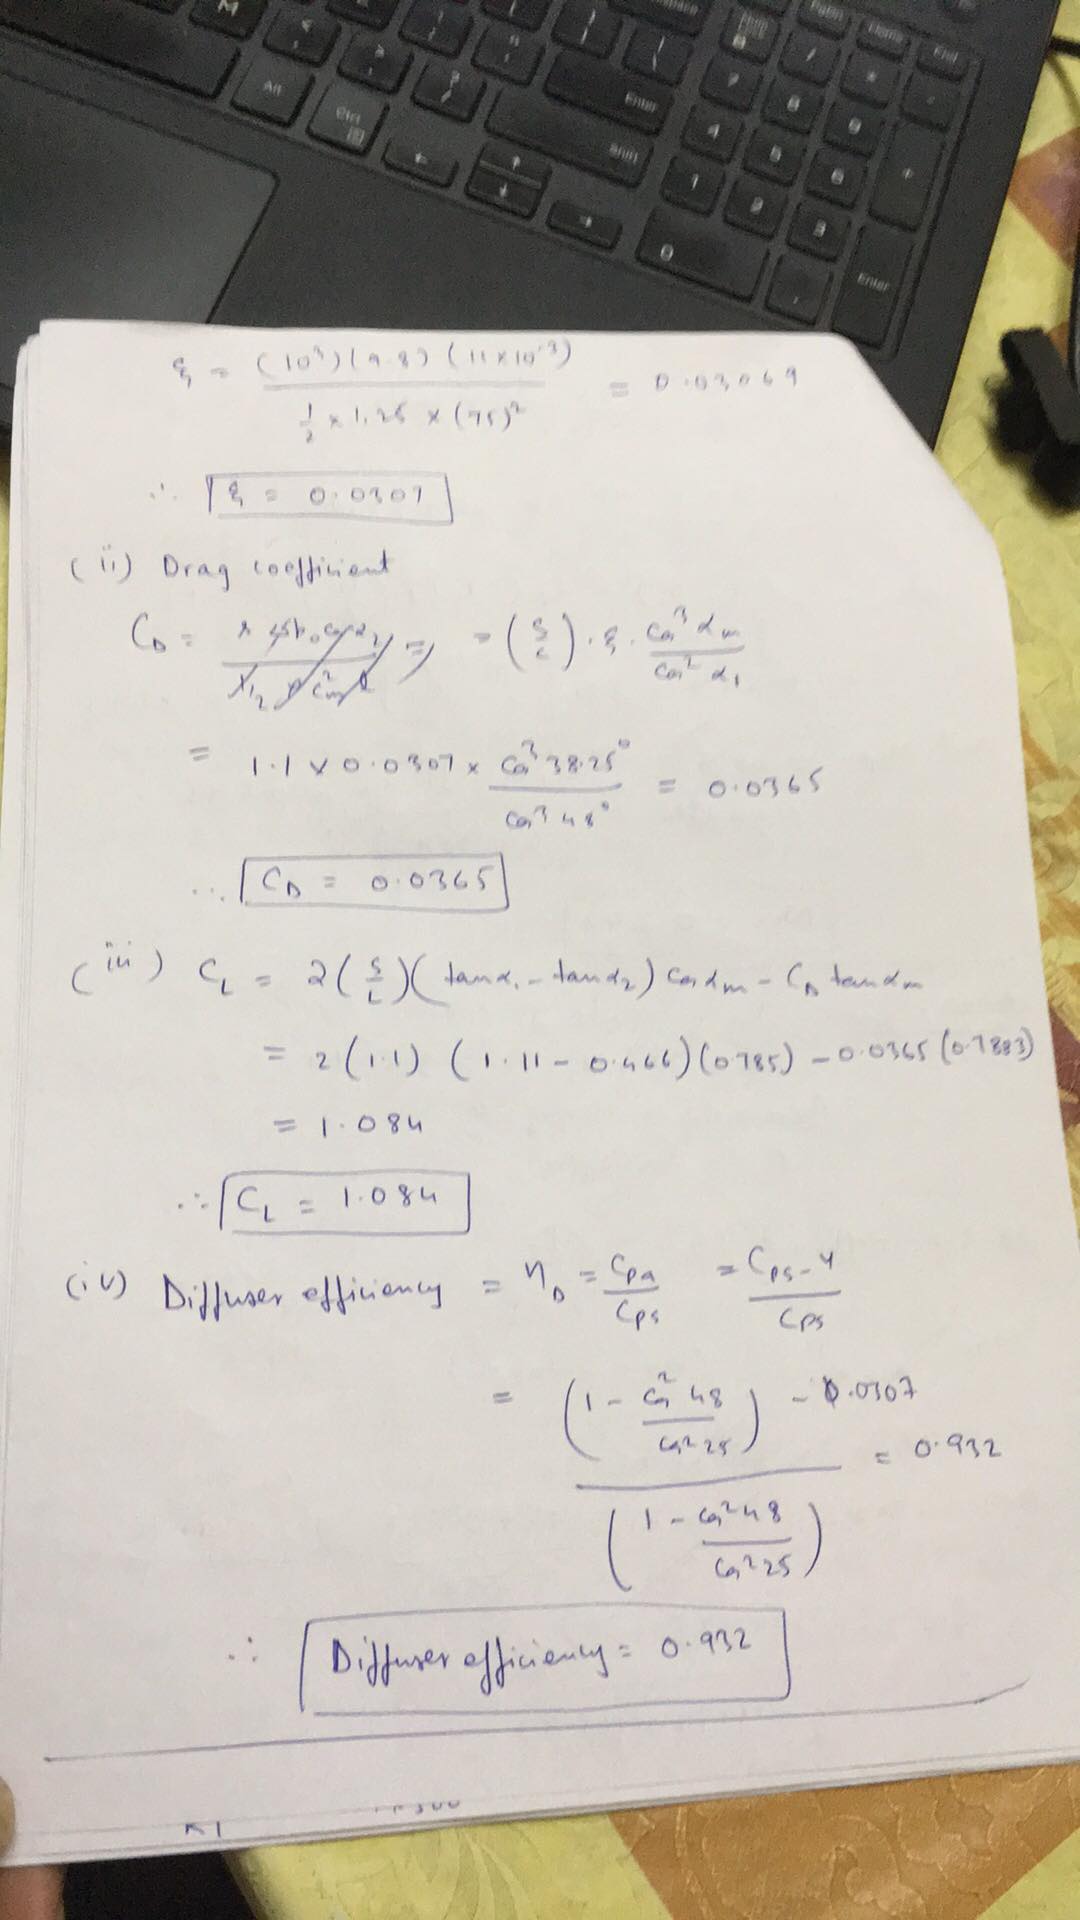 M
Alt
Ctrl
Enter
Shift
End
7 8 9
4 5 6 +
1 2 3
0 . Enter
ξ = (10³)(9.8)(11×10⁻³) / ½ × 1.25 × (75)² = 0.03069
∴ ξ = 0.0307
(ii) Drag coefficient
C_D = = (s/c) . ξ . cos³ αm / cos² α₁
= 1.1 × 0.0307 × cos³ 38.25° / cos² 48° = 0.0365
∴ C_D = 0.0365
(iii) C_L = 2(s/c)(tanα₁ - tanα₂) cosαm - C_D tanαm
= 2(1.1) (1.11 - 0.466)(0.785) - 0.0365(0.7883)
= 1.084
∴ C_L = 1.084
(iv) Diffuser efficiency = η_D = Cpa / Cps = Cps - Y / Cps
= (1 - cos² 48 / cos² 25) - 0.0307 / (1 - cos² 48 / cos² 25) = 0.932
∴ Diffuser efficiency = 0.932